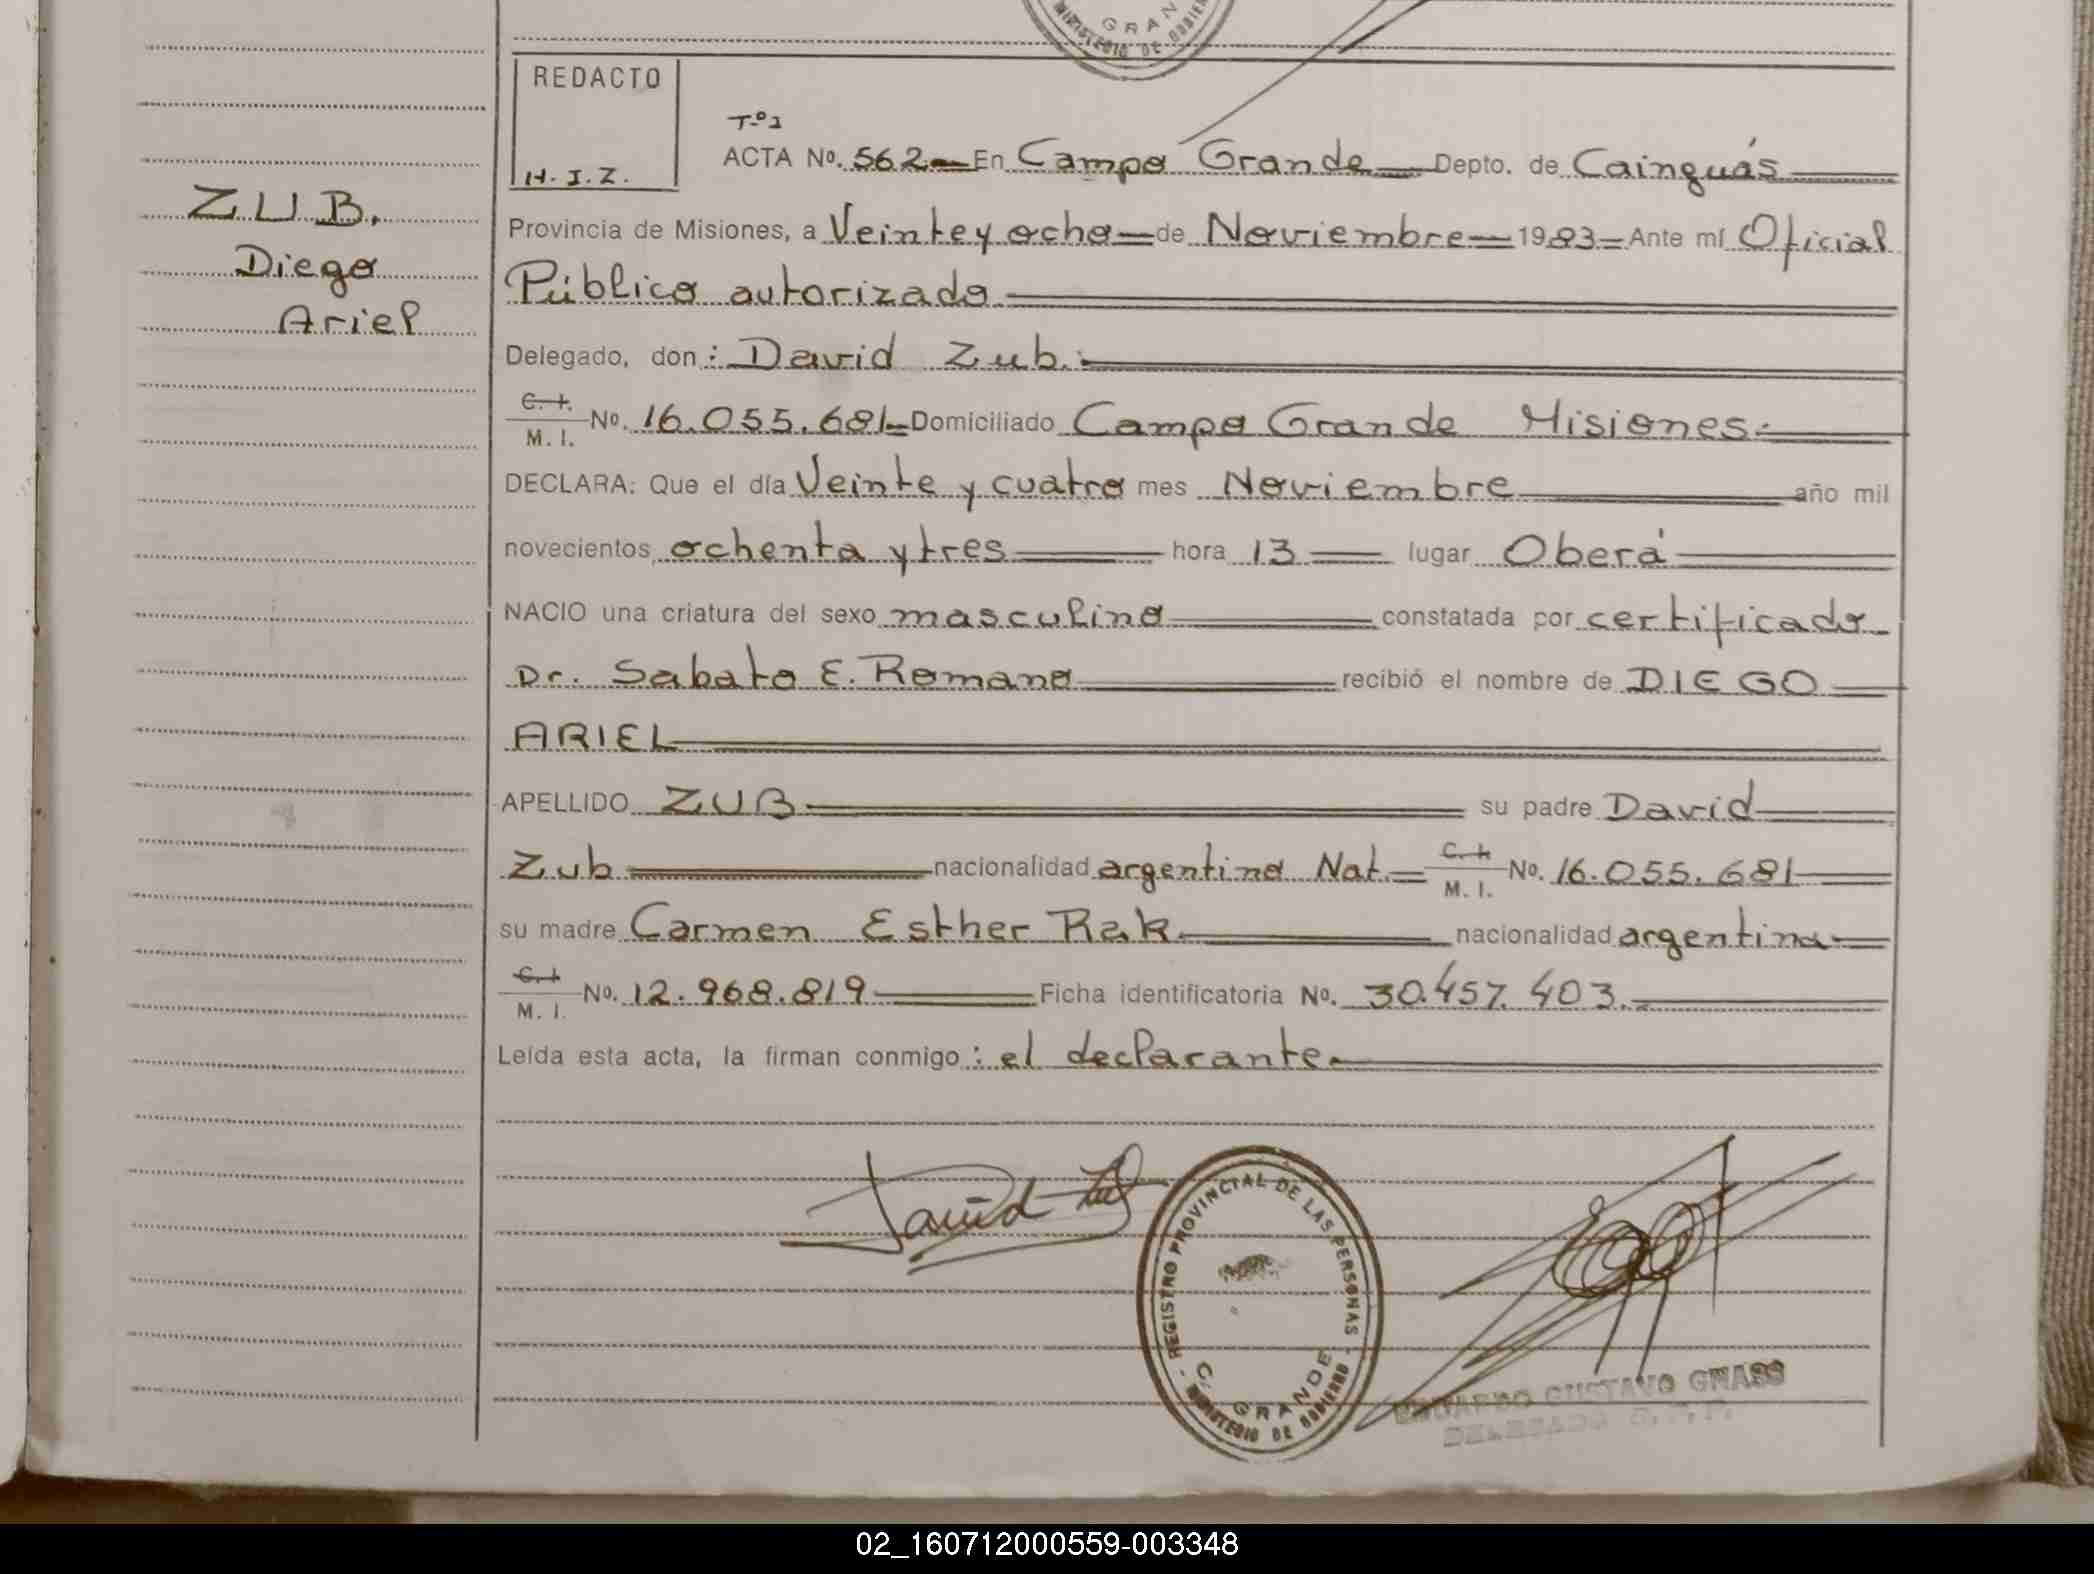 GRAN
MINISTERIO DE GOBIER
REDACTO
H.J.Z.
Tº1
ACTA Nº. 562 En Campo Grande Depto. de Cainguás
ZUB,
Diego
Ariel
Provincia de Misiones, a Veinte y ocho de Noviembre 1983 Ante mí Oficial
Público autorizado
Delegado, don: David Zub.
C. I.
M. I. Nº. 16.055.681 Domiciliado Campo Grande Misiones.
DECLARA: Que el día Veinte y cuatro mes Noviembre año mil
novecientos ochenta y tres hora 13 lugar Oberá
NACIO una criatura del sexo masculino constatada por certificado
Dr. Sabato E. Romano recibió el nombre de DIEGO
ARIEL
APELLIDO ZUB su padre David
Zub nacionalidad argentino Nat. C. I.
M. I. Nº. 16.055.681
su madre Carmen Esther Rak nacionalidad argentina
C. I.
M. I. Nº. 12.968.819 Ficha identificatoria Nº. 30.457.403.
Leída esta acta, la firman conmigo: el declarante.
David Zub
REGISTRO PROVINCIAL DE LAS PERSONAS
C. GRANDE
MINISTERIO DE GOBIERNO
EDUARDO GUSTAVO
DELEGADO
02_160712000559-003348